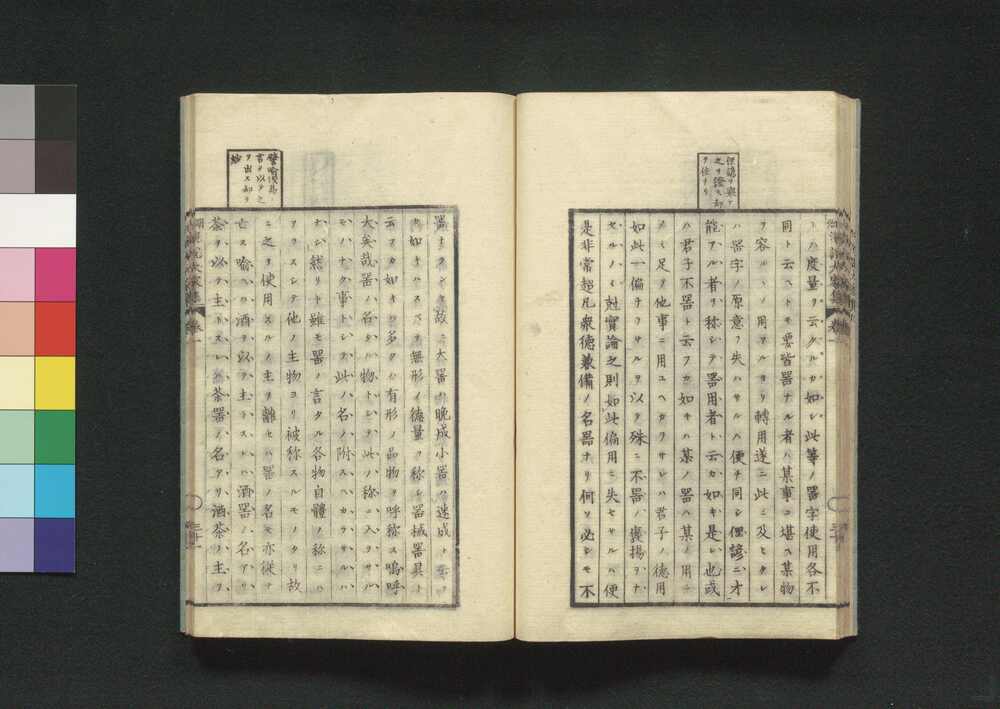 俚諺ヲ擧テ
之ヲ證ス却
テ佳ナリ
トハ度量ヲ云クルカ如シ此等ノ器字使用各不
同ト云ヘトモ要皆器ナル者ハ某事ニ堪ヘ某物
ヲ容ルヽノ用アルヨリ轉用遂ニ此ニ及ヒタレ
ハ器字ノ原意ヲ失ハサルハ便チ同シ俚諺ニ才
能アル者ヲ称シテ器用者ト云カ如キ是レ也或
ハ君子不器ト云フカ如キハ某ノ器ハ某ノ用ニ
ノミ足リ他事ニ用ユヘカラサレハ君子ノ德用
如此一偏ナラサルヲ以テ殊ニ不器ノ褒揚ヲナ
セルノミ尅實論之則如此偏用ニ失セサルハ便
是非常超凡衆德兼備ノ名器ナリ何ソ必シモ不
譬喩淺易
言ヲ以テ之
ヲ出ス却テ
妙
器トランヤ故ニ大器ハ晩成小器ハ速成ト云フ
カ如キハスヘテ無形ノ德量ヲ称シ器械器具ト
云フカ如キハ多ク有形ノ品物ヲ呼称ス嗚呼
大矣哉器ノ名タル物トシテ此ノ称ニ入ラサル
モノナク事トシテ此ノ名ノ附スヘカラサルハ
ナシ然リト雖モ器ノ言タル各物自體ノ称ニハ
アラスシテ他ノ主物ヨリ被称スルモノタリ故
ニ之ヲ使用スルノ主ヲ離セハ器ノ名モ亦従テ
亡ス喩ヘハ酒ヲ以テ主トスレハ酒器ノ名アリ
茶ヲ以テ主トスレハ茶器ノ名アリ酒茶ノ主ヲ